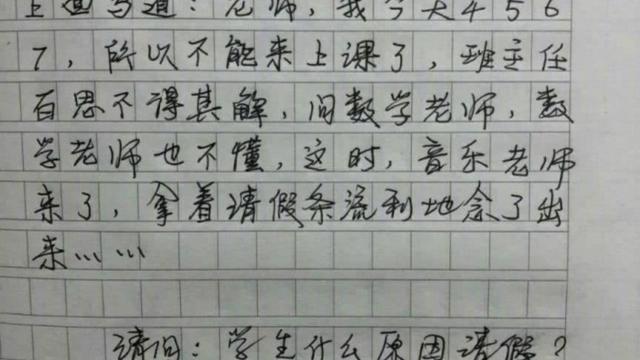 上道写道：老师，我今天456
7，所以不能来上课了，班主任
百思不得其解，问数学老师，数
学老师也不懂，这时，音乐老师
来了，拿着请假条流利地念了出
来……
请问：学生什么原因请假？